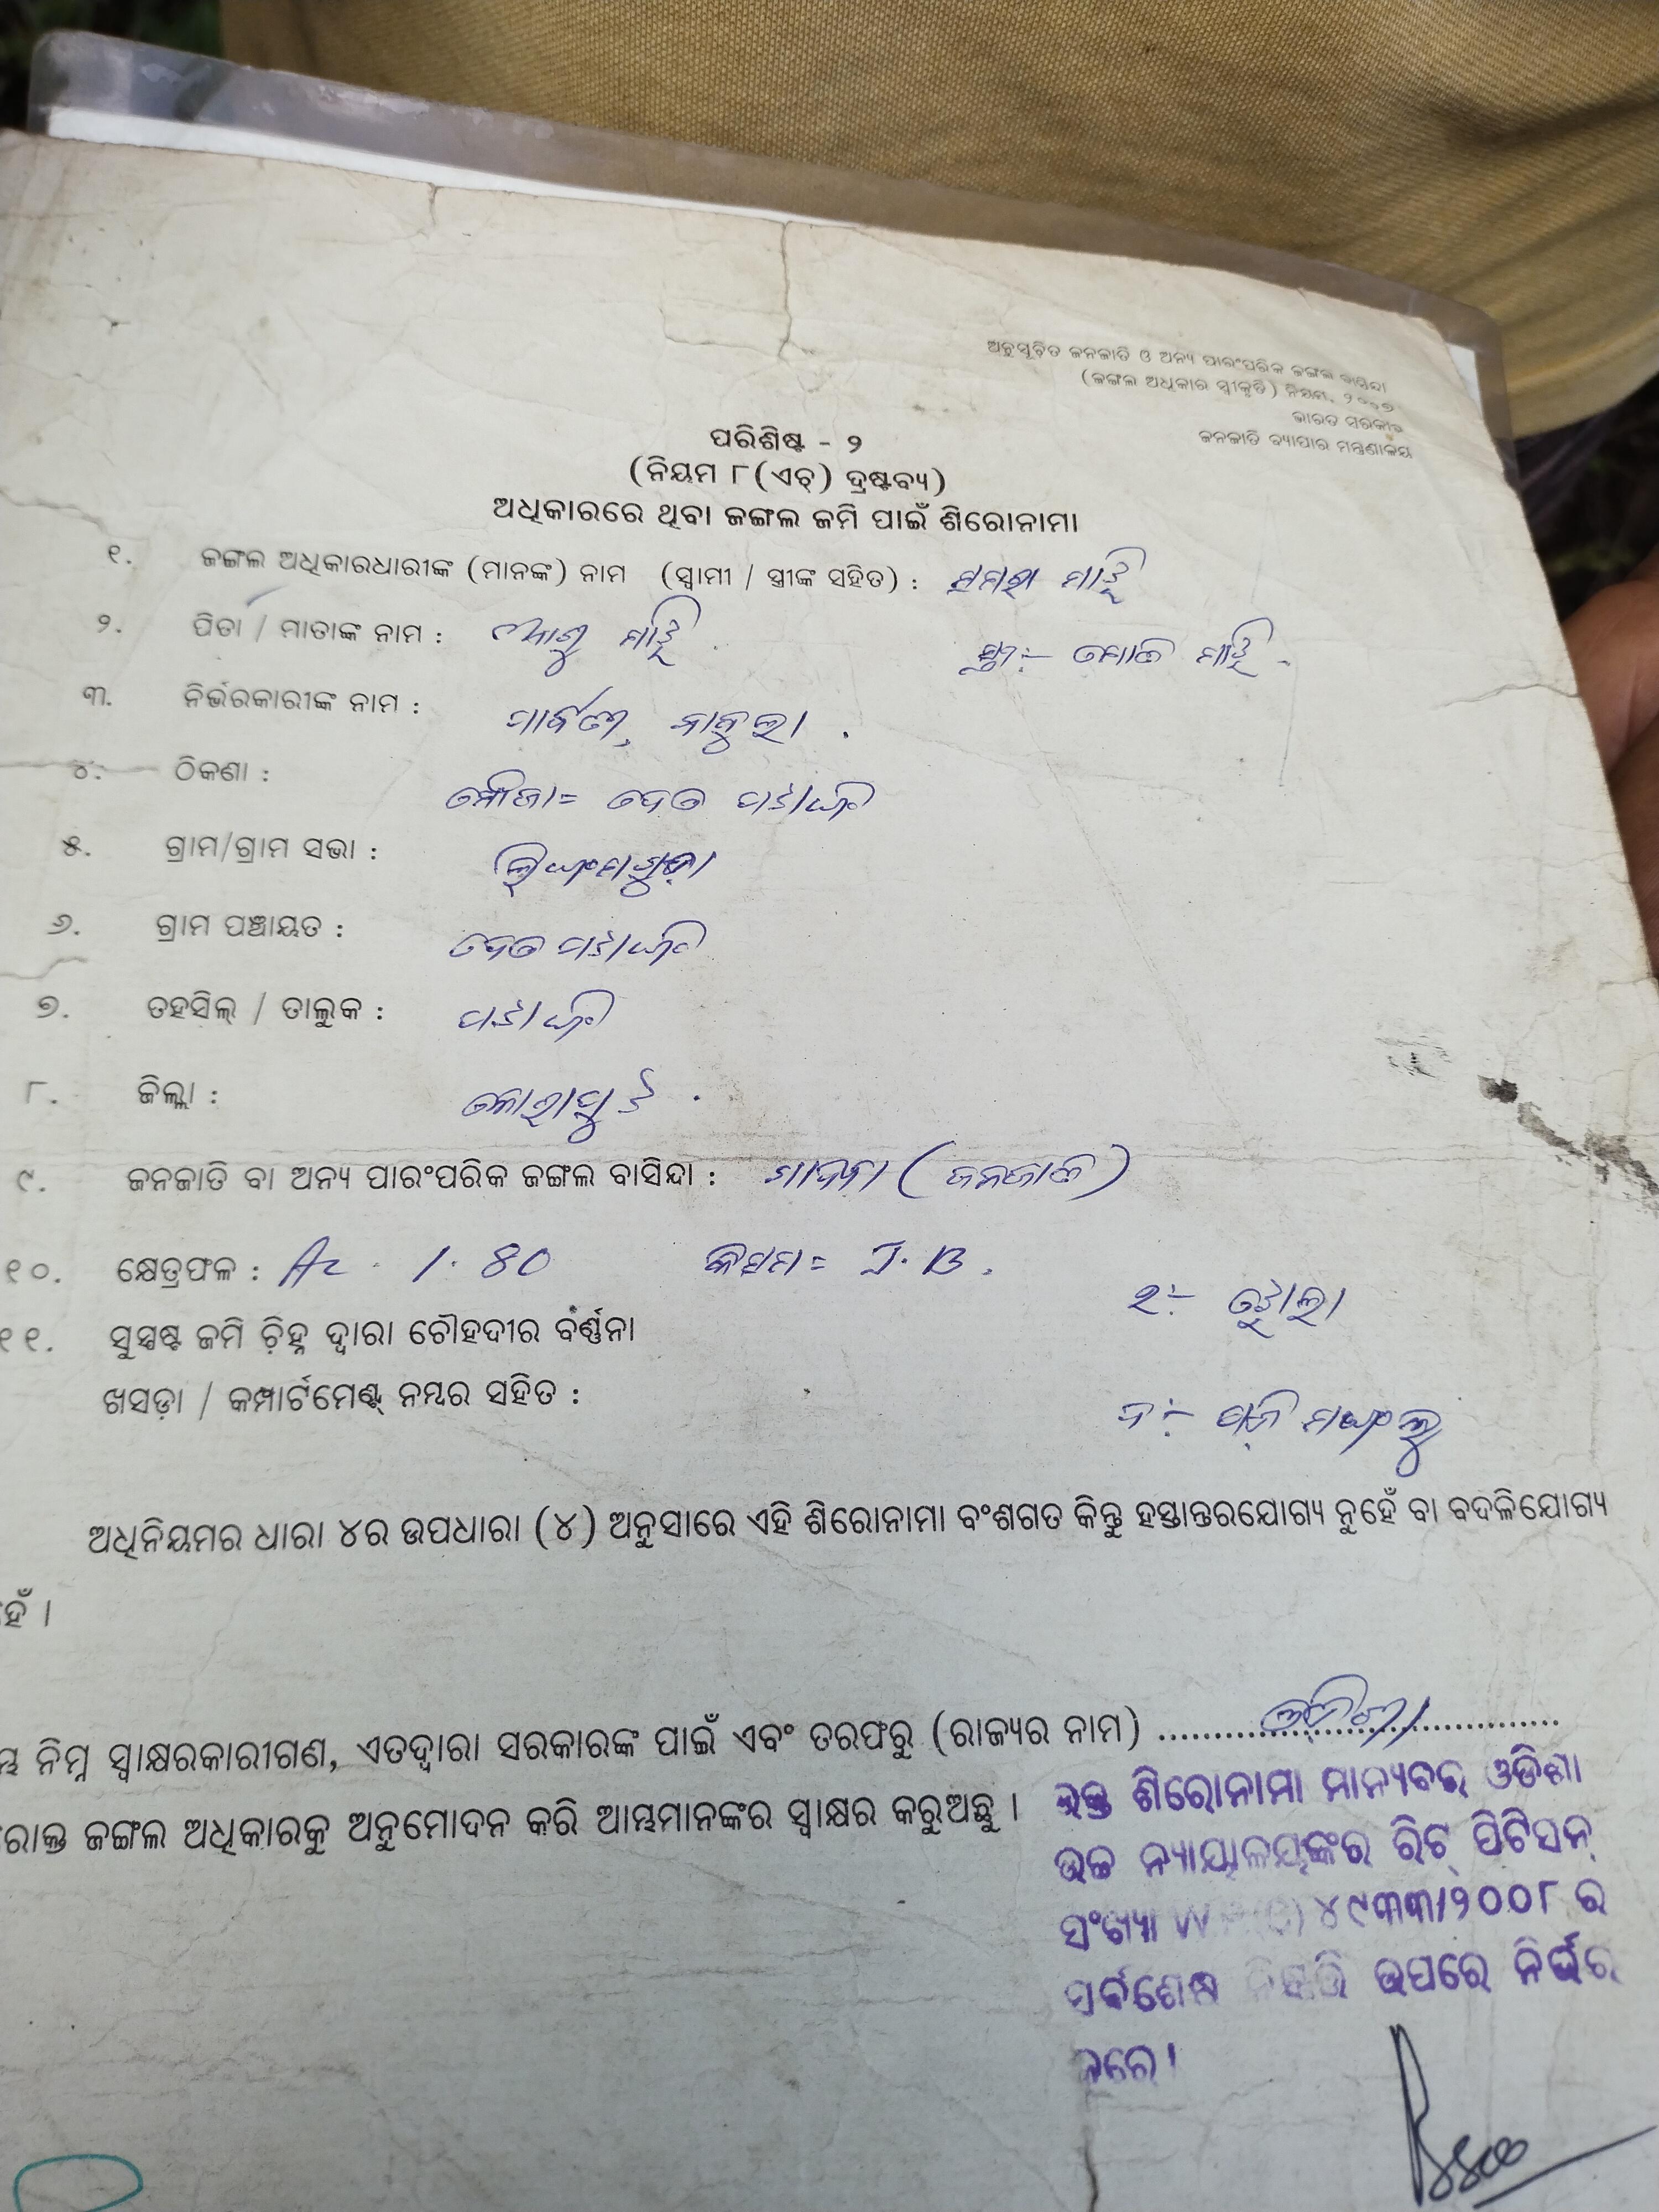 ଅନୁସୂଚିତ ଜନଜାତି ଓ ଅନ୍ୟ ପାରଂପରିକ ଜଙ୍ଗଲ ବାସିନ୍ଦା
(ଜଙ୍ଗଲ ଅଧିକାର ସ୍ୱୀକୃତି) ନିୟମ, ୨୦୦୭
ଭାରତ ସରକାର
ଜନଜାତି ବ୍ୟାପାର ମନ୍ତ୍ରଣାଳୟ
ପରିଶିଷ୍ଟ - ୨
(ନିୟମ ୮(ଏଚ୍) ଦ୍ରଷ୍ଟବ୍ୟ)
ଅଧିକାରରେ ଥିବା ଜଙ୍ଗଲ ଜମି ପାଇଁ ଶିରୋନାମା
୧. ଜଙ୍ଗଲ ଅଧିକାରଧାରୀଙ୍କ (ମାନଙ୍କ) ନାମ (ସ୍ୱାମୀ / ସ୍ତ୍ରୀଙ୍କ ସହିତ) : ସମରା ମାଝି
୨. ପିତା / ମାତାଙ୍କ ନାମ : ମାଝି ସ୍ତ୍ରୀ:- ମୋତି ମାଝି
୩. ନିର୍ଭରକାରୀଙ୍କ ନାମ : ପାର୍ବତୀ,
୪. ଠିକଣା : ମୌଜା=
୫. ଗ୍ରାମ/ଗ୍ରାମ ସଭା :
୬. ଗ୍ରାମ ପଞ୍ଚାୟତ :
୭. ତହସିଲ୍ / ତାଲୁକ : ପଟାଙ୍ଗି
୮. ଜିଲ୍ଲା : କୋରାପୁଟ
୯. ଜନଜାତି ବା ଅନ୍ୟ ପାରଂପରିକ ଜଙ୍ଗଲ ବାସିନ୍ଦା : ଗାଦବା (ଜନଜାତି)
୧୦. କ୍ଷେତ୍ରଫଳ : Ac. 1.80 କିସମ=
ଉ:- ଝୋଲା
୧୧. ସୁସ୍ପଷ୍ଟ ଜମି ଚିହ୍ନ ଦ୍ୱାରା ଚୌହଦୀର ବର୍ଣ୍ଣନା
ଖସଡ଼ା / କମ୍ପାର୍ଟମେଣ୍ଟ୍ ନମ୍ବର ସହିତ :
ଦ:-
ଅଧିନିୟମର ଧାରା ୪ର ଉପଧାରା (୪) ଅନୁସାରେ ଏହି ଶିରୋନାମା ବଂଶଗତ କିନ୍ତୁ ହସ୍ତାନ୍ତରଯୋଗ୍ୟ ନୁହେଁ ବା ବଦଳିଯୋଗ୍ୟ
ହେଁ ।
ନିମ୍ନ ସ୍ୱାକ୍ଷରକାରୀଗଣ, ଏତଦ୍ୱାରା ସରକାରଙ୍କ ପାଇଁ ଏବଂ ତରଫରୁ (ରାଜ୍ୟର ନାମ) ଓଡ଼ିଶା
ରୋକ୍ତ ଜଙ୍ଗଲ ଅଧିକାରକୁ ଅନୁମୋଦନ କରି ଆମ୍ଭମାନଙ୍କର ସ୍ୱାକ୍ଷର କରୁଅଛୁ ।
ଉକ୍ତ ଶିରୋନାମା ମାନ୍ୟବର ଓଡିଶା
ଉଚ୍ଚ ନ୍ୟାୟାଳୟଙ୍କର ରିଟ୍ ପିଟିସନ୍
ସଂଖ୍ୟା ୪୯୩୩/୨୦୦୮ ର
ସର୍ବଶେଷ ଉପରେ ନିର୍ଭର
କରେ।